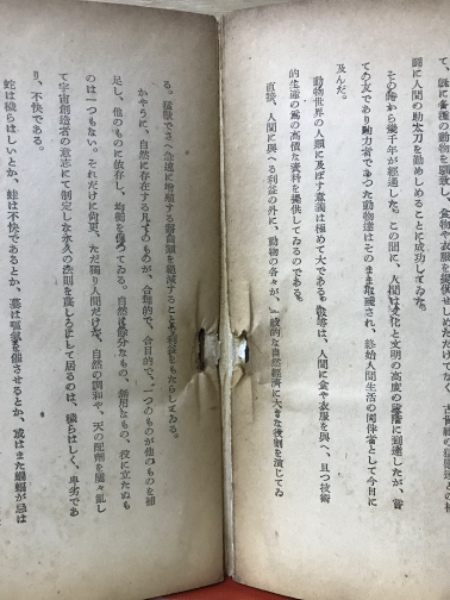 て、誰に各種の動物を馴致し、食物や衣服を提供せしめただけでなく、古
闘に人間の助太刀を勤めしめることに成功してゐた。
その時から幾千年が經過した。この間に、人間は文化と文明の高度の段階に到達したが、嘗
ての友であり助力者であつた動物達はそのまま取殘され、終始人間生活の同伴者として今日に
及んだ。
動物世界の人類に及ぼす意義は極めて大である。彼等は、人間に食や衣服を與へ、且つ技術
的生産の爲の高價な資料を提供してゐるのである。
直接、人間に與へる利益の外に、動物の各々が、一般的な自然經濟に大きな役割を演じてゐ
る。猛獸でさへ急速に増殖する齧齒類を絶滅することで利益をもたらしてゐる。
かやうに、自然に存在する凡てのものが、合理的で、合目的で、一つのものが他のものを補
足し、他のものに依存し、均衡を保つてゐる。自然には餘分なもの、無用なもの、役に立たぬも
のは一つもない。それだけに尚更、ただ獨り人間だけが、自然の調和や、天の配劑を屡々亂し
て宇宙創造者の意志にて制定した永久の法則を蔑しろにして居るのは、穢らはしく、卑劣であ
り、不快である。
蛇は穢らはしいとか、蛙は不快であるとか、蟇は嘔吐を催させるとか、或はまた蝙蝠が忌は